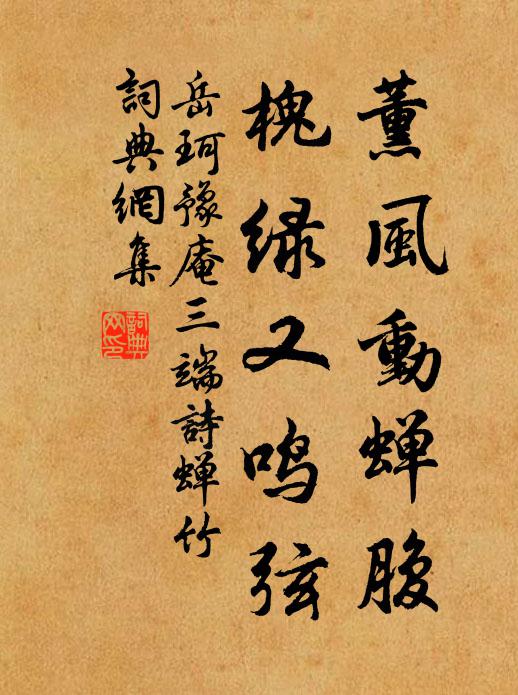 薰風動蝉腹
槐绿又鸣弦
岳珂豫庵三端詩蝉竹
詞典網集
詞典网印